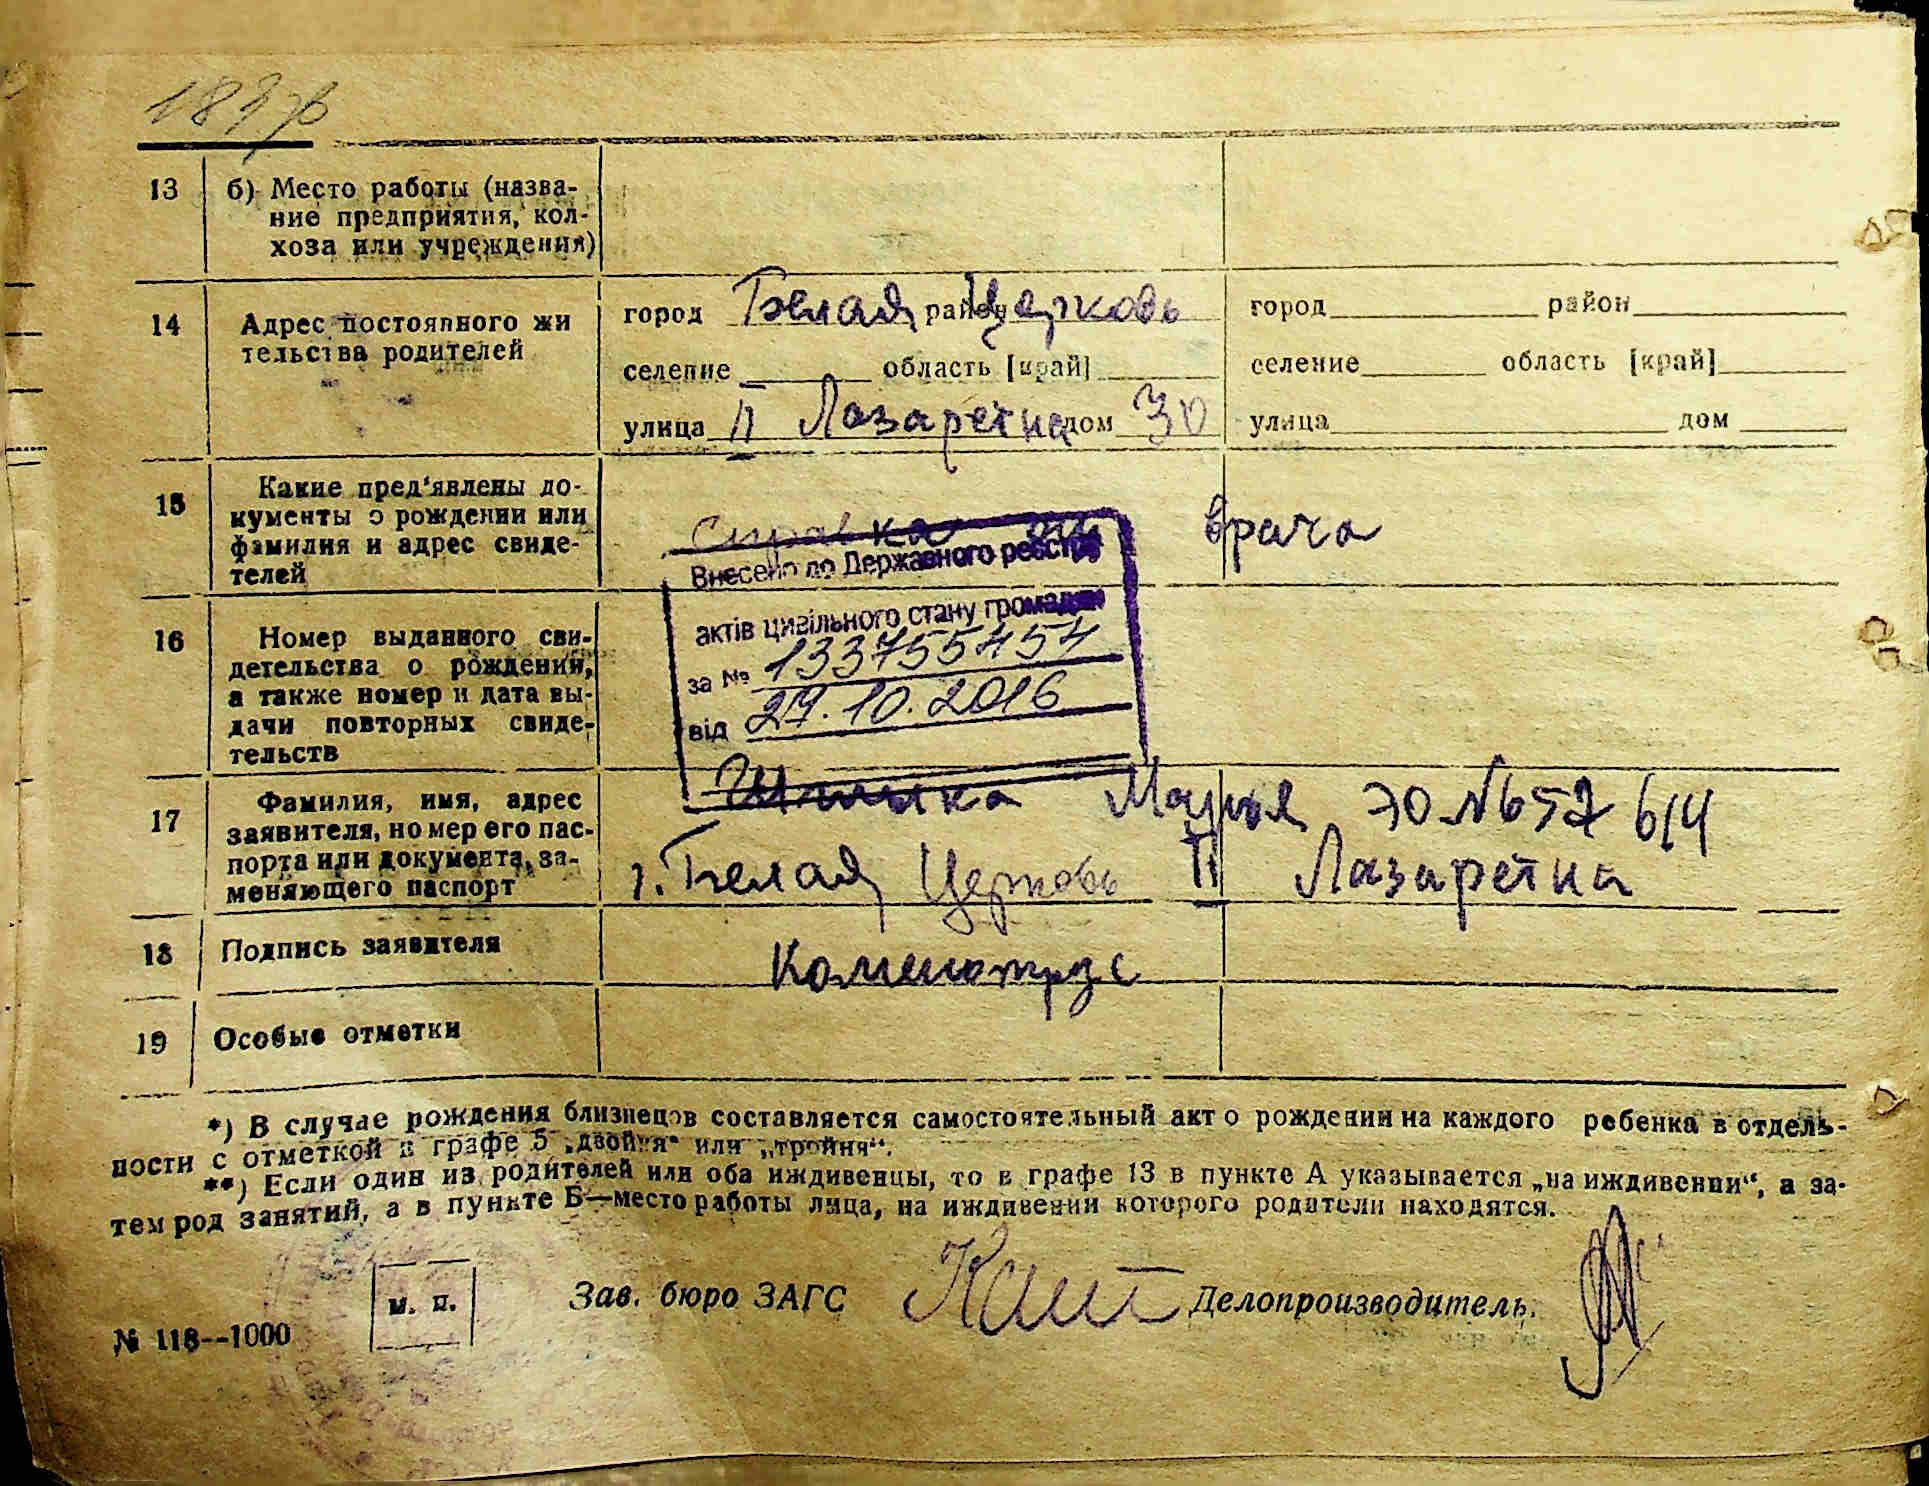 13 б) Место работы (назва-
ние предприятия, кол-
хоза или учреждения)
14 Адрес постоянного жи
тельства родителей
город Белая район Церковь
селение область [край]
улица II Лазаретна дом 30
город район
селение область [край]
улица дом
15 Какие пред‘явлены до-
кументы о рождении или
фамилия и адрес свиде-
телей
справка врача
Внесено до Державного реєстру
актів цивільного стану громадян
за № 133755454
від 27.10.2016
16 Номер выданного сви-
детельства о рождении,
а также номер и дата вы-
дачи повторных свиде-
тельств
17 Фамилия, имя, адрес
заявителя, номер его пас-
порта или документа, за-
меняющего паспорт
Мария ЭО №652 614
г. Белая Церковь II Лазаретна
18 Подпись заявителя
19 Особые отметки
*) В случае рождения близнецов составляется самостоятельный акт о рождении на каждого ребенка в отдель-
ности с отметкой в графе 5 „двойня“ или „тройня“.
**) Если один из родителей или оба иждивенцы, то в графе 13 в пункте А указывается „на иждивении“, а за-
тем род занятий, а в пункте Б—место работы лица, на иждивении которого родители находятся.
м. п.
Зав. бюро ЗАГС Делопроизводитель.
№ 118--1000